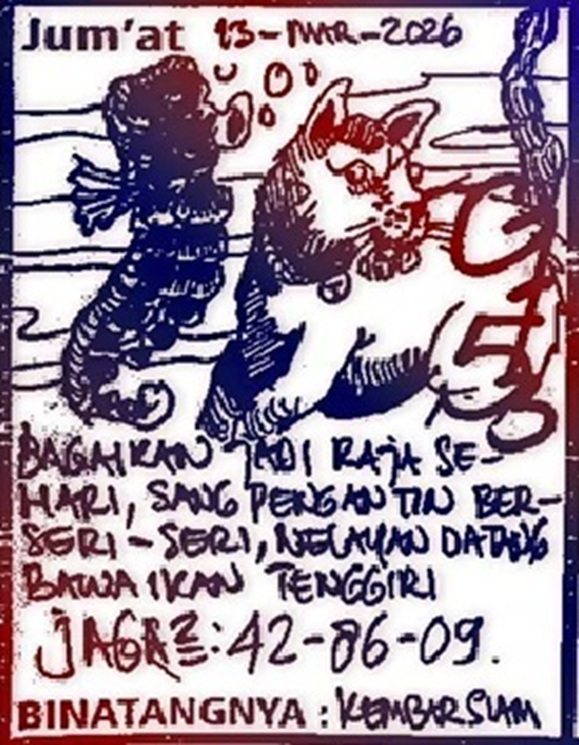 Jum'at 13-MAR-2026
BAGAIKAN JADI RAJA SE-
HARI, SANG PENGANTIN BER-
SERI-SERI, NELAYAN DATANG
BAWA IKAN TENGGIRI
JAGA2:42-86-09.
BINATANGNYA : KEMBAR SIAM